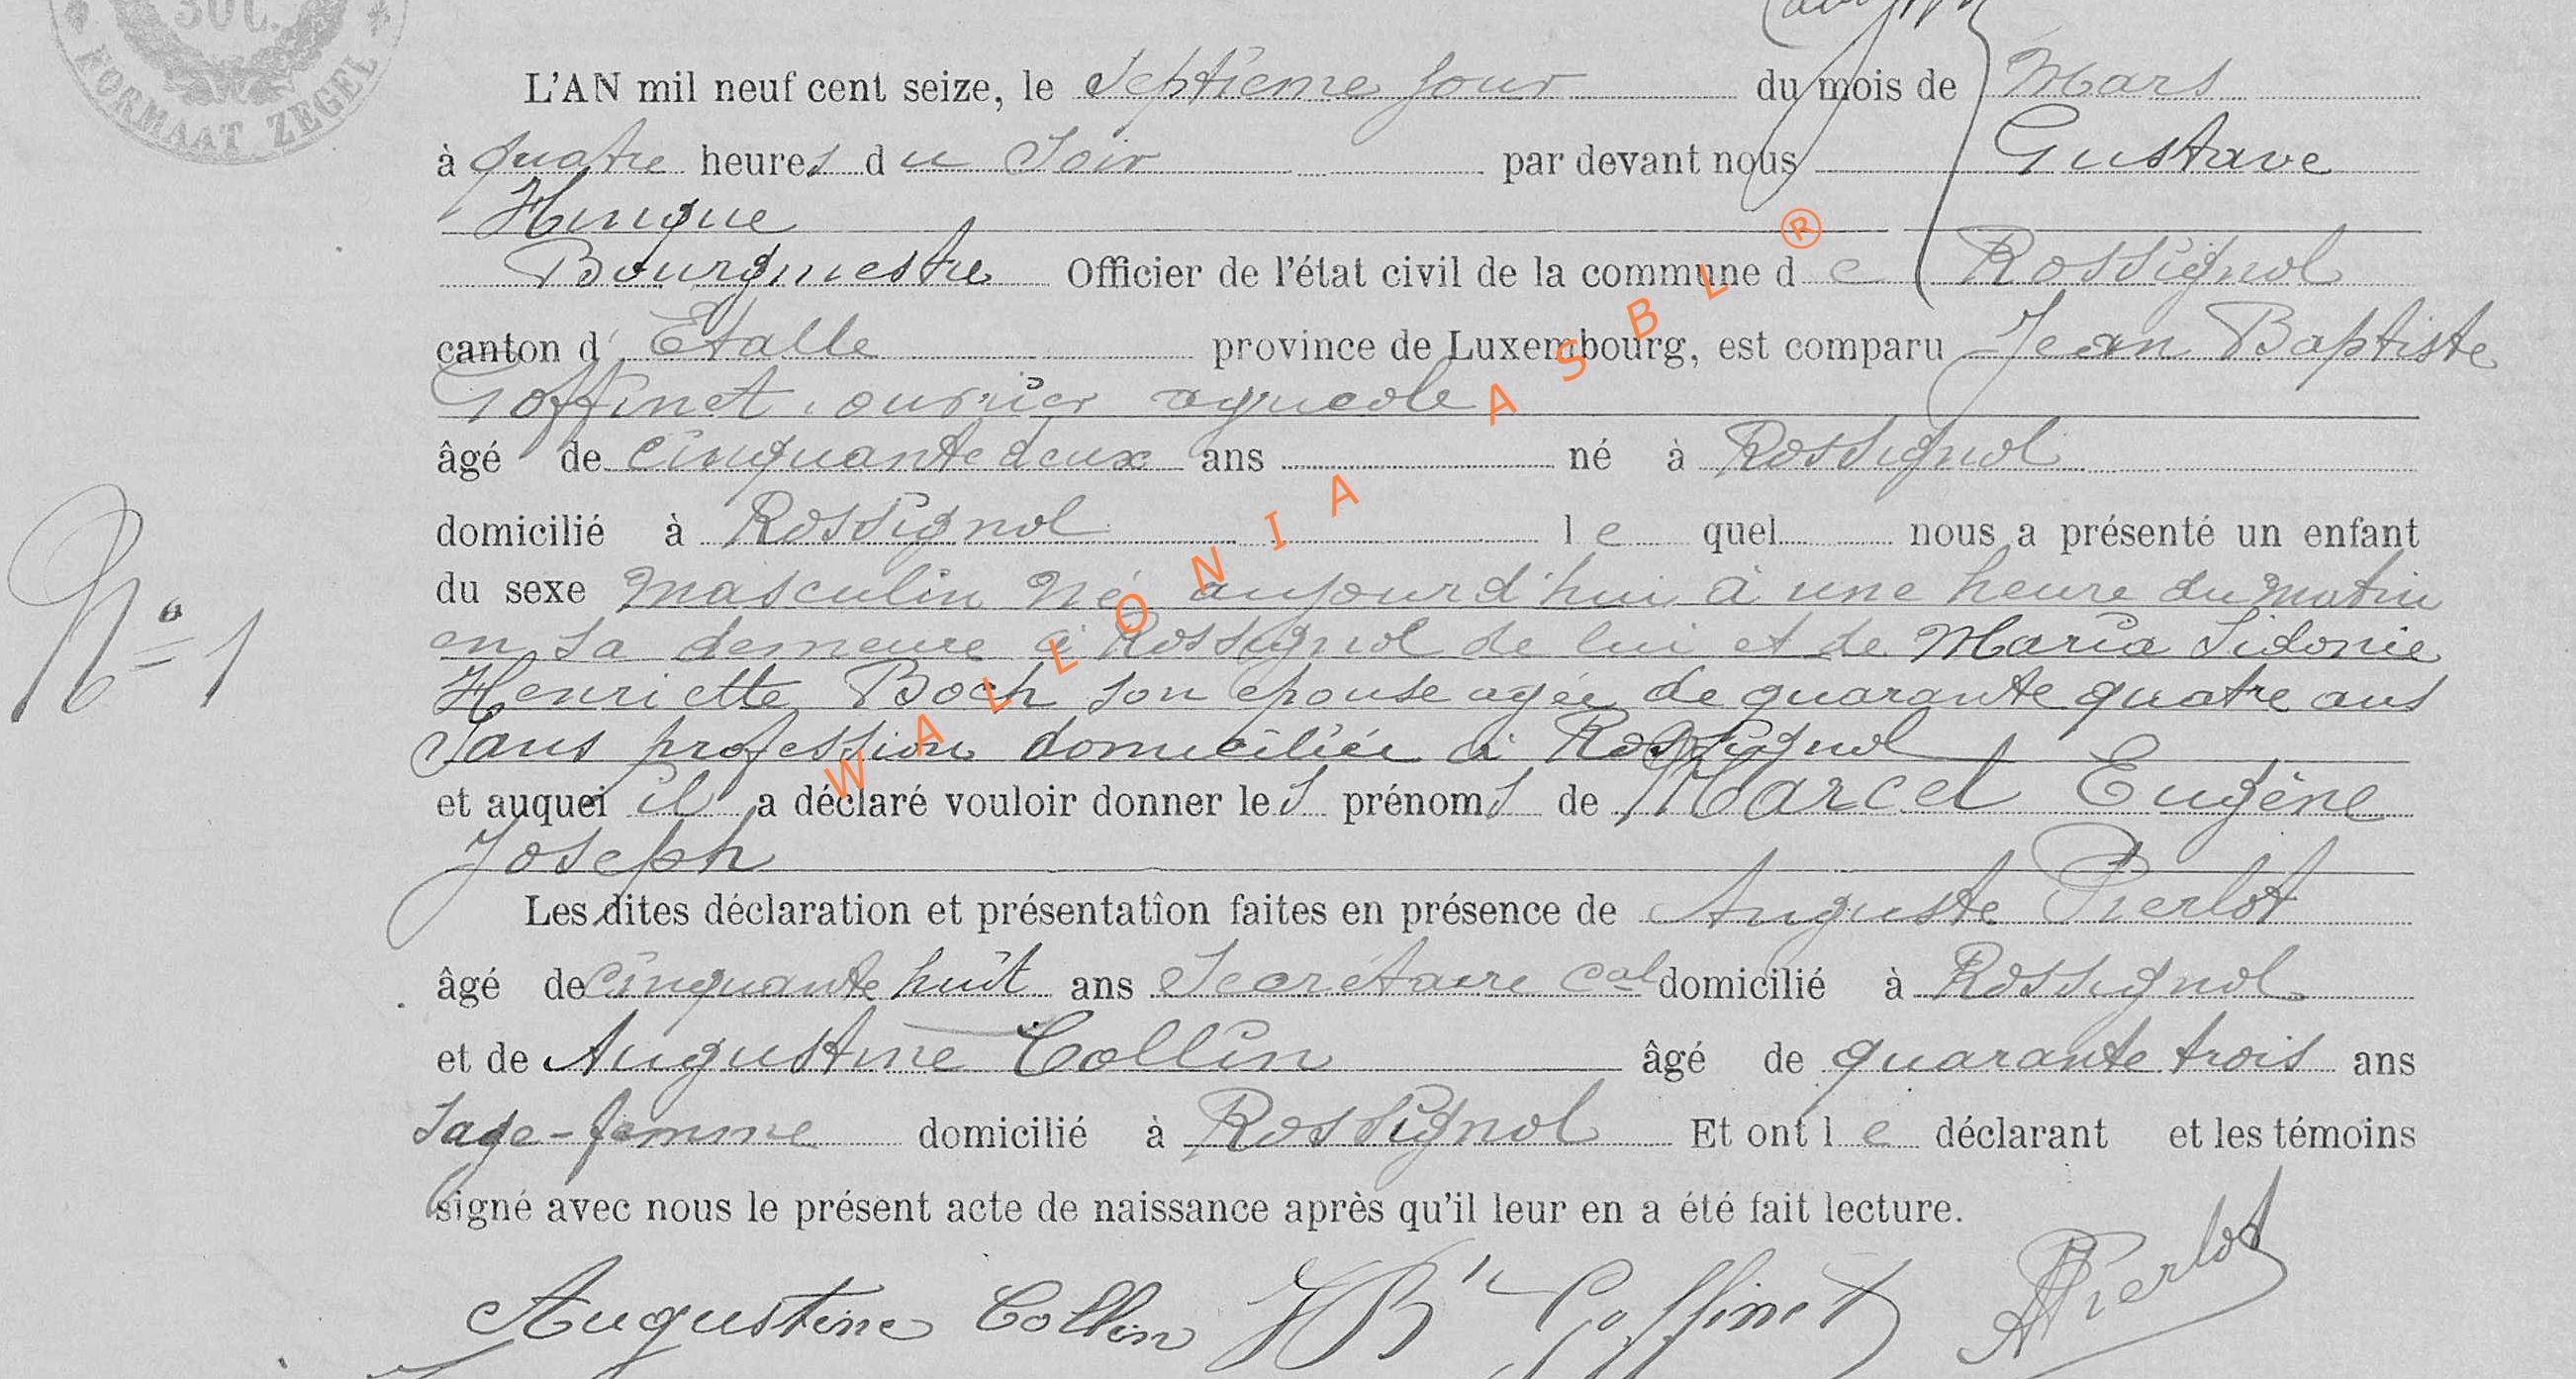 30C.
FORMAAT ZEGEL
L'AN mil neuf cent seize, le Septième jour du mois de Mars
à quatre heures du Soir par devant nous Gustave
Hinque
Bourgmestre Officier de l'état civil de la commune de Rossignol
canton d'Etalle province de Luxembourg, est comparu Jean Baptiste
Goffinet, ouvrier agricole
âgé de cinquante deux ans né à Rossignol
domicilié à Rossignol le quel nous a présenté un enfant
N° 1
du sexe masculin né aujourd'hui à une heure du matin
en sa demeure à Rossignol de lui et de Maria Sidonie
Henriette Boch son épouse agée de quarante quatre ans
Sans profession domiciliée à Rossignol
et auquel il a déclaré vouloir donner les prénoms de Marcel Eugène
Joseph
Les dites déclaration et présentation faites en présence de Auguste Pierlot
âgé de cinquante huit ans Secrétaire cal domicilié à Rossignol
et de Augustine Collin âgé de quarante trois ans
Sage-femme domicilié à Rossignol Et ont le déclarant et les témoins
signé avec nous le présent acte de naissance après qu'il leur en a été fait lecture.
Augustine Collin JBte Goffinet APierlot
WALLONIA ASBL ®